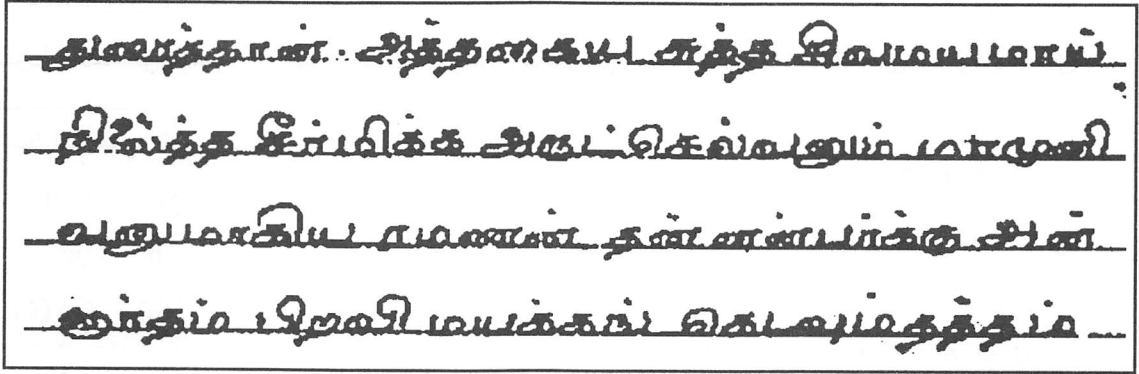 துரைத்தான். அத்தகைய சுத்த சிவமயமாய்
நிலைத்த சீர்மிக்க அருட் செல்வனும் மாமுனி
வனுமாகிய ரமணன் தன்னன்பர்க்கு அண்
ணர்தம் பிறவி மயக்கங் கெடவும்தத்தம்